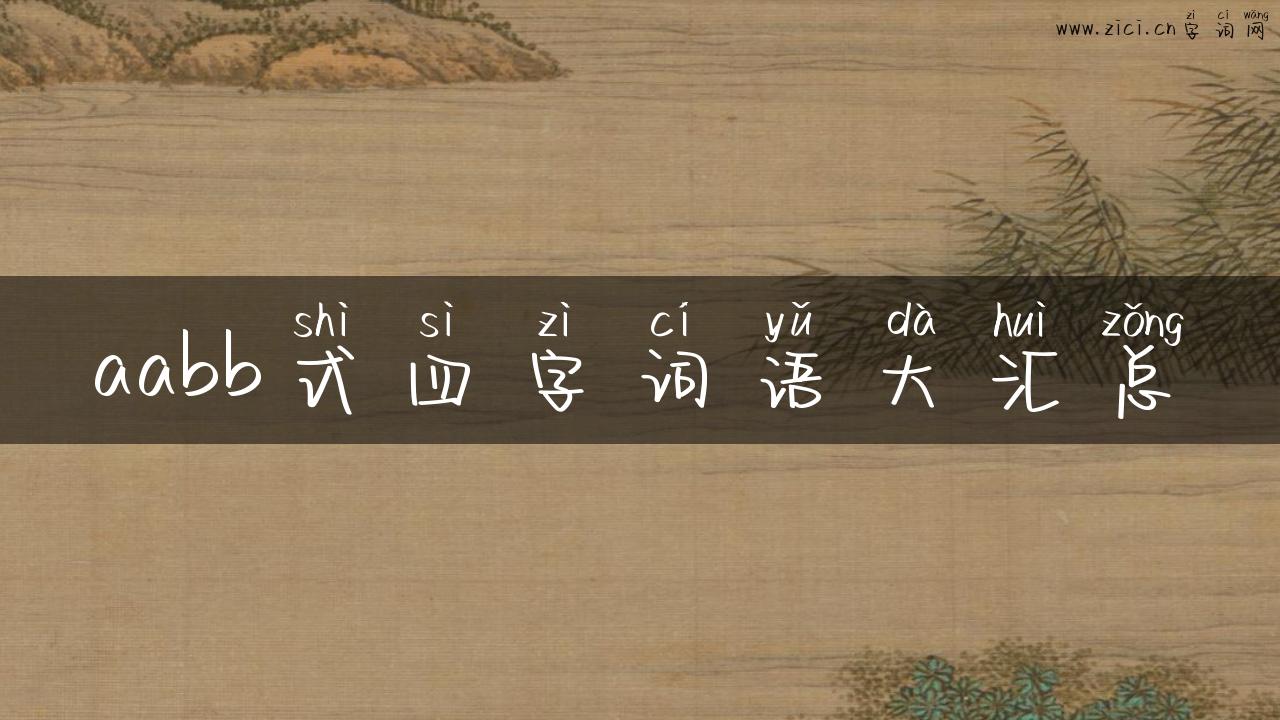 zì cí wǎng
www.zici.cn 字词网
shì sì zì cí yǔ dà huì zǒng
aabb 式四字词语大汇总